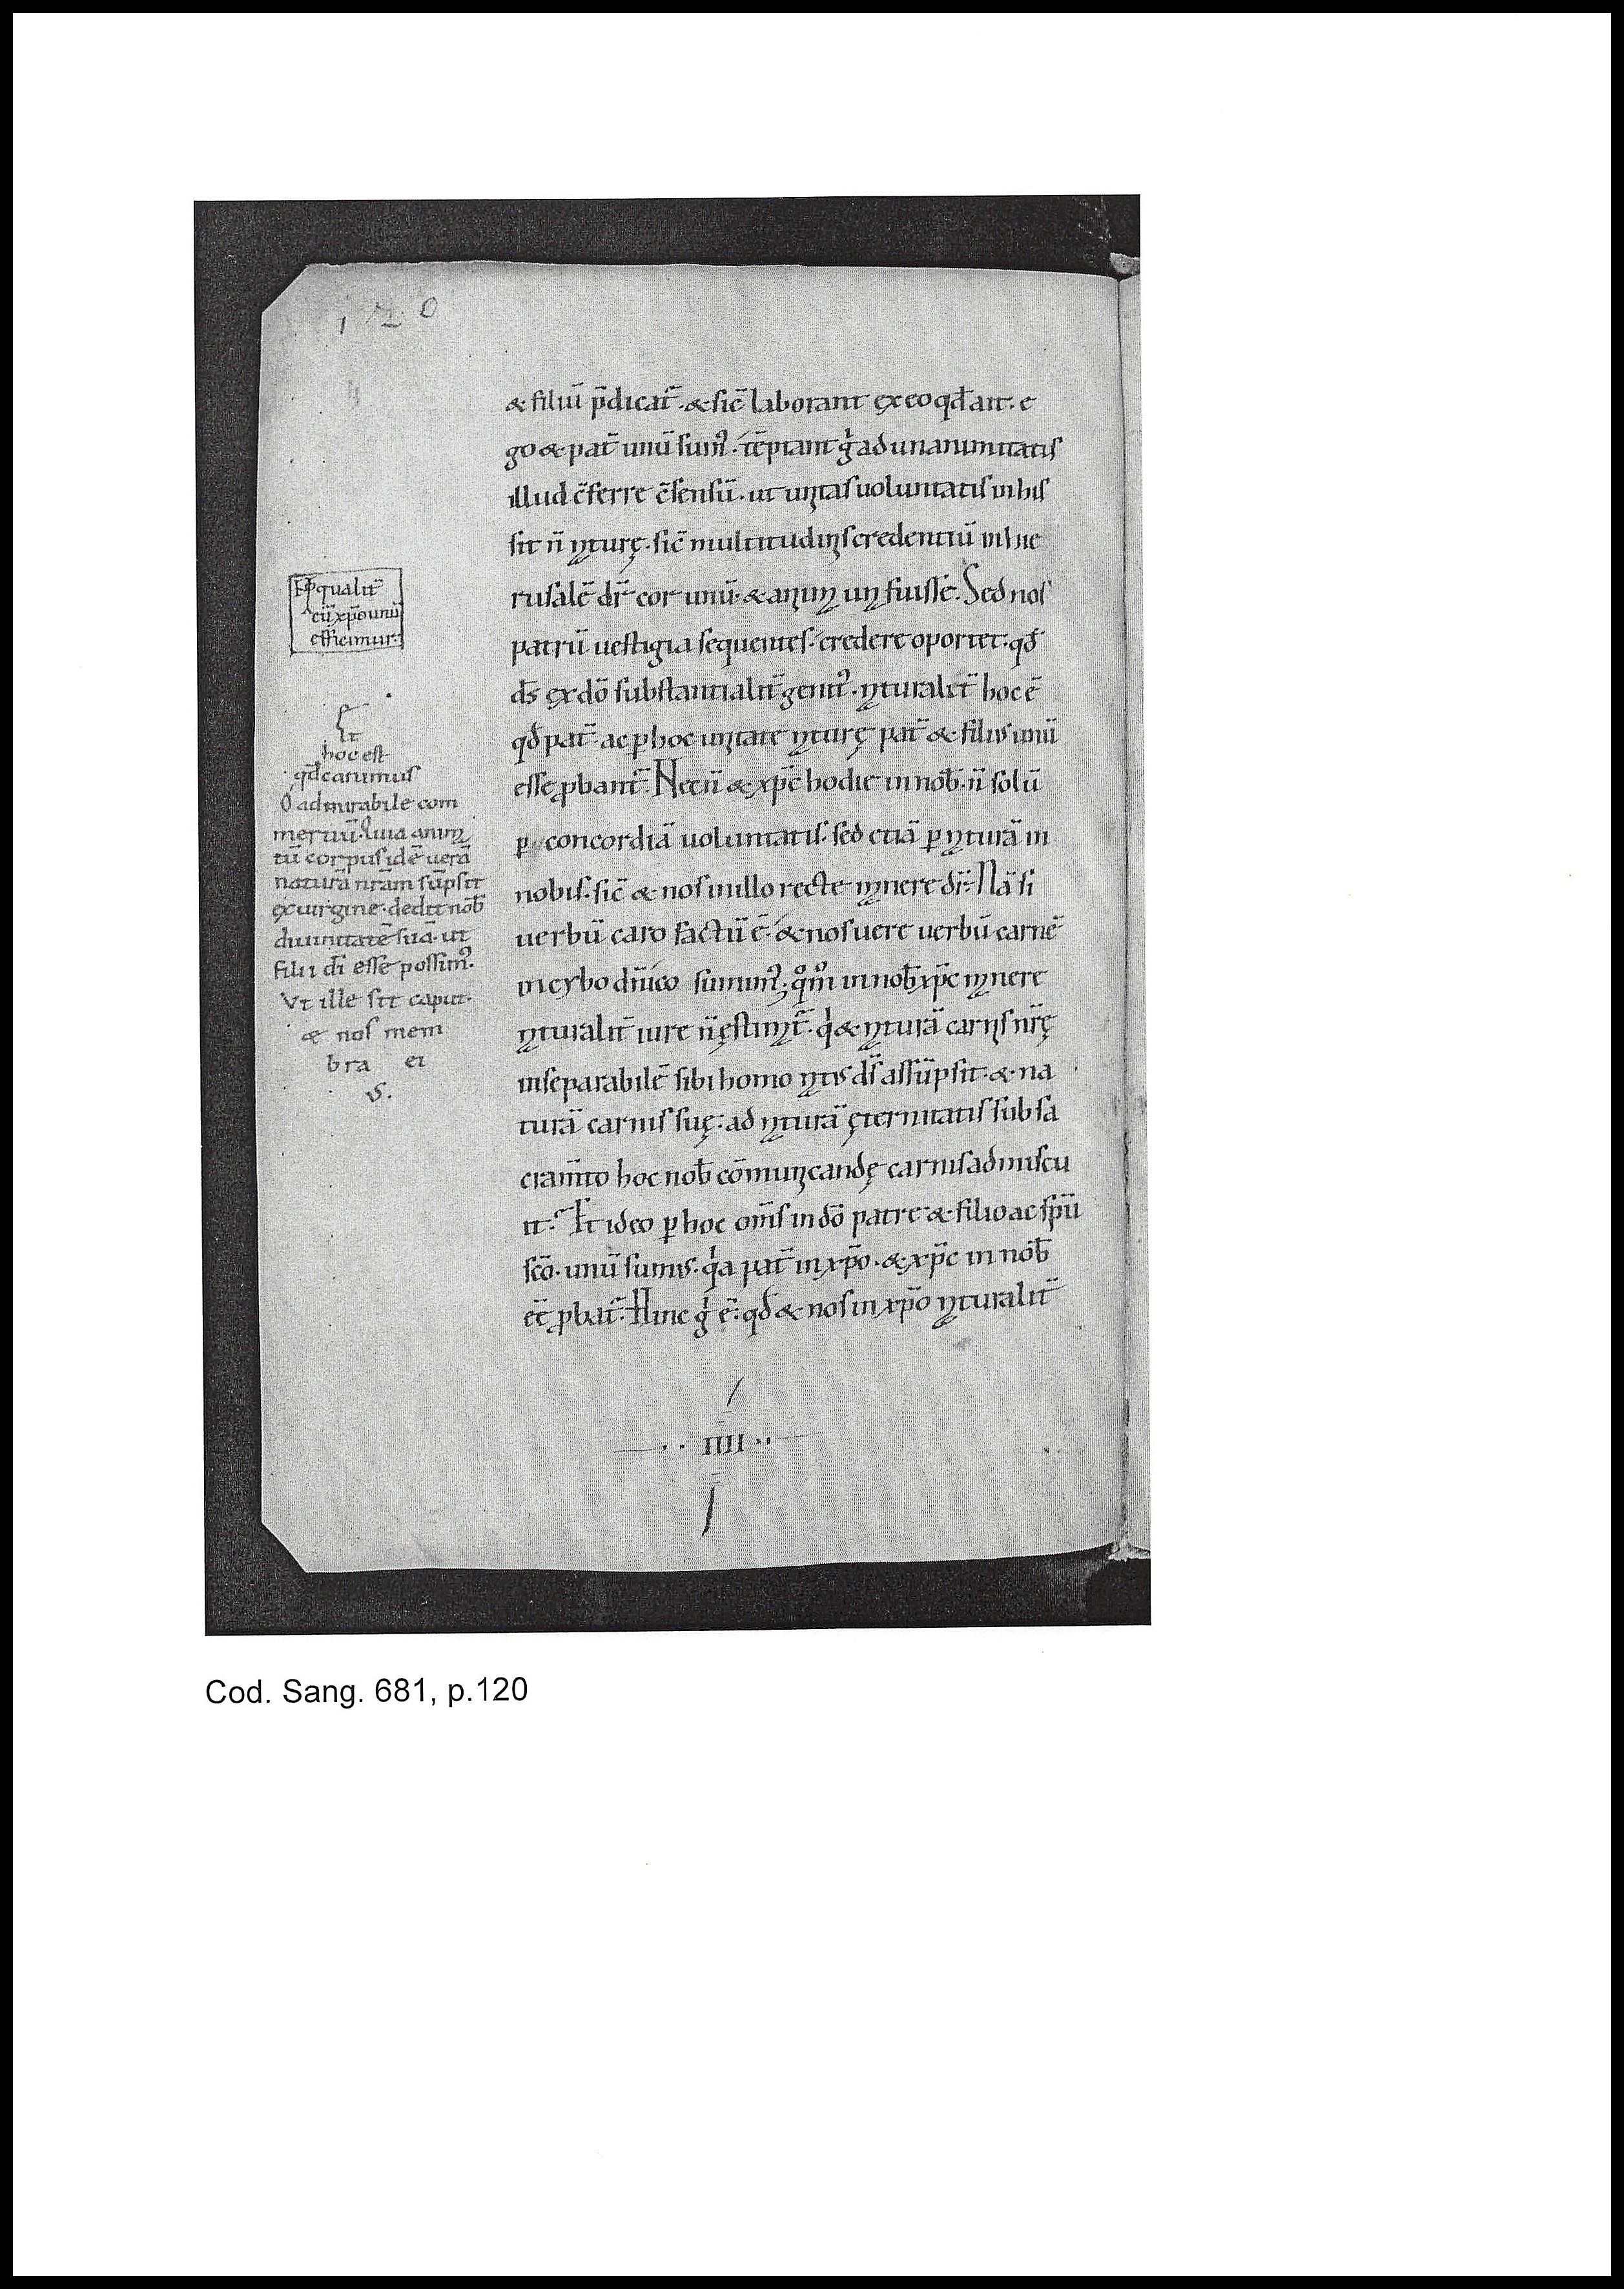 120
& filiū p̄dicat̄ · & sic̄ laborant ex eo qđ ait · e
go & pat̄ unū sumꝰ · tēptant gͥ ad unanimitatis
illud c̄ferre c̄sensū · ut unitas uoluntatis in his
sit n̄ naturę · sic̄ multitudinis credentiū in hie
rusalē dr̄ cor unū · & anima una fuisse · Sed nos
patrū uestigia sequentes · credere oportet · qđ
ds̄ ex dō substantialit̄ genitꝰ · naturalit̄ hoc ē
qđ pat̄ · ac ꝑ hoc unitate naturę pat̄ & filius unū
esse ꝓbant̄ · Necn̄ & xp̄c hodie in nob̄ · n̄ solū
ꝑ concordiā uoluntatis · sed etiā ꝑ naturā in
nobis · sic̄ & nos in illo recte manere dr̄ · Nā si
uerbū caro factū ē · & nos uere uerbū carnē
in cybo dn̄ico sumimꝰ · qm̊ in nob̄ xp̄c manere
naturalit̄ iure n̄ ęstimat̄ · qͥ & naturā carnis nr̄ę
inseparabilē sibi homo natus ds̄ assūpsit · & na
turā carnis suę · ad naturā ęternitatis sub sa
cram̄to hoc nob̄ cōmunicandę carnis admiscu
it · Et ideo ꝑ hoc om̄s in dō patre & filio ac sp̄u
sc̄o · unū sumus · qͥa pat̄ in xp̄o · & xp̄c in nob̄
ēē ꝓbat̄ · Hinc gͥ ē · qđ & nos in xp̄o naturalit̄
qualit̄
cū xp̄o unū
efficimur ·
hoc est
qđ canimus
O admirabile com
mertiū · Quia anima
tū corpus idē uerā
naturā nr̄am sūpsit
ex uirgine · dedit nob̄
diuinitatē suā · ut
filii dī esse possimꝰ ·
Vt ille sit caput ·
& nos mem
bra ei
us ·
·· IIII ··
Cod. Sang. 681, p.120